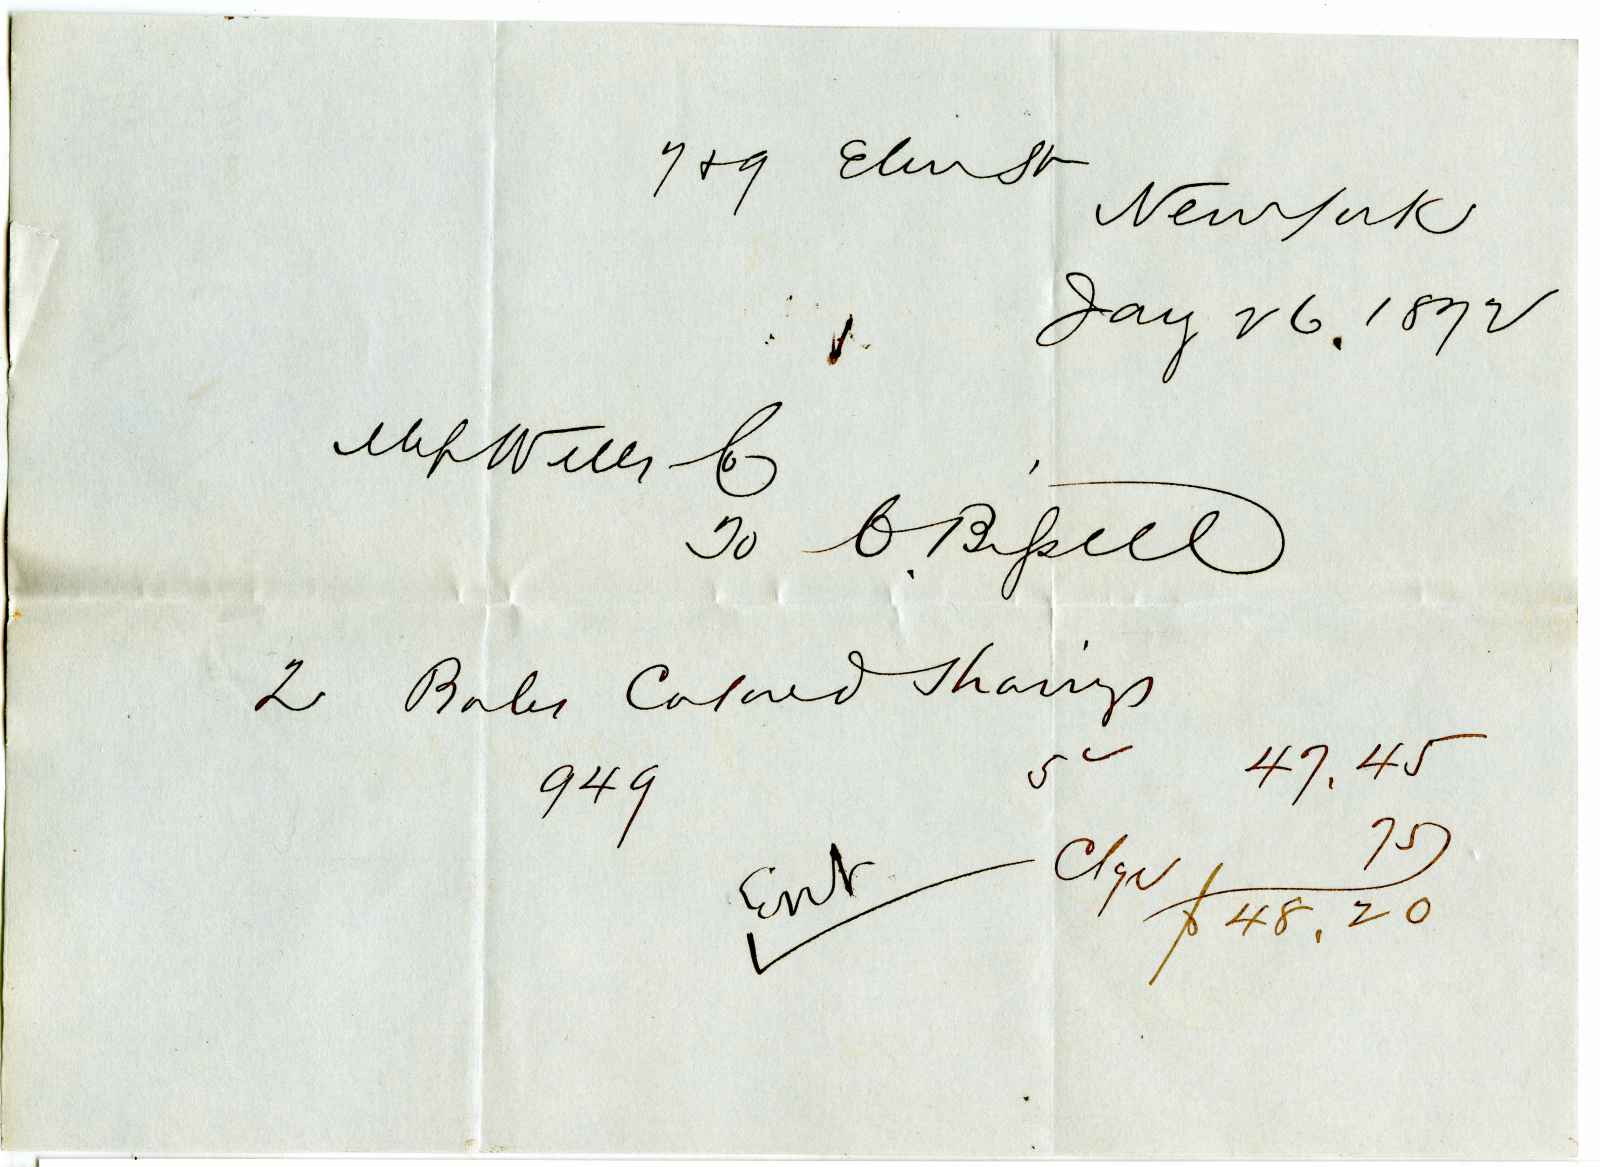 7 + 9 Elm St
New York
Jany 26. 1872
Wells Co
To C. Bissell
2 Bales Colored Shavings
949 5c 47.45
Ent Chgs 75
$48.20